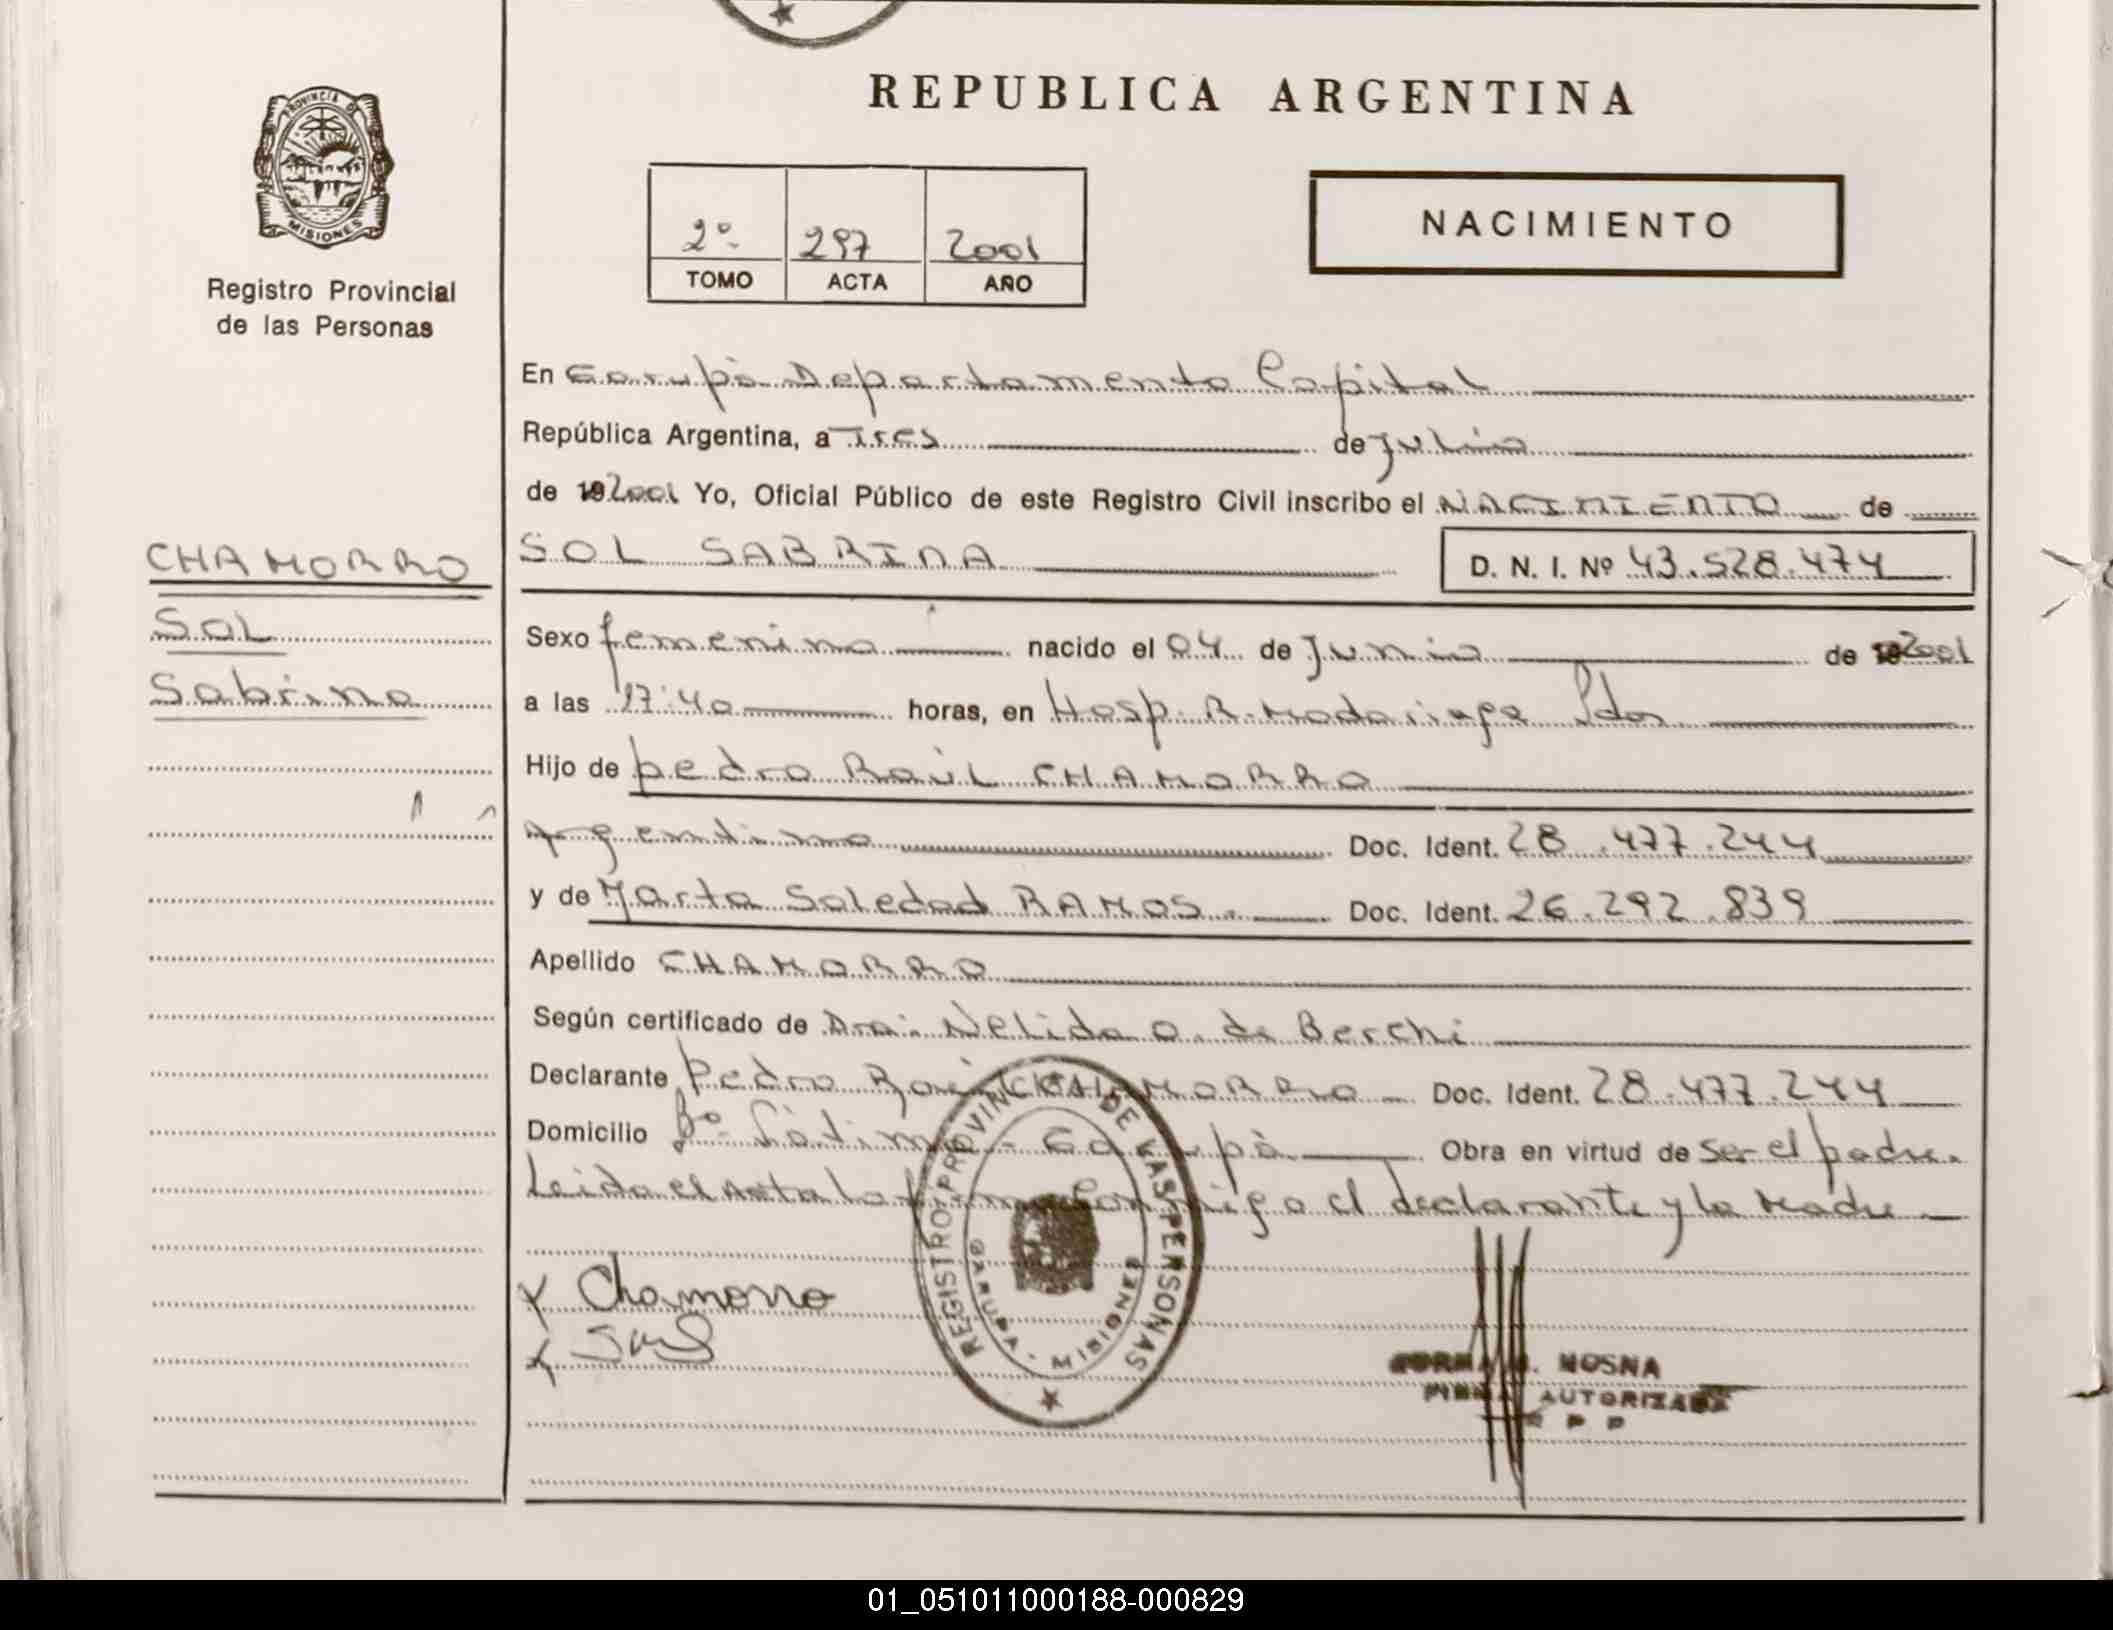 REPUBLICA ARGENTINA
PROVINCIA DE
MISIONES
Registro Provincial
de las Personas
2º 297 2001
TOMO ACTA AÑO
NACIMIENTO
En Garupá Departamento Capital
República Argentina, a Tres de Julio
de 192001 Yo, Oficial Público de este Registro Civil inscribo el NACIMIENTO de
CHAMORRO
SOL
Sabrina
SOL SABRINA D. N. I. Nº 43.528.474
Sexo femenino nacido el 04 de Junio de 2001
a las 17:40 horas, en Hosp. R. Madariaga Pdas
Hijo de pedro Raúl CHAMORRO
Argentino Doc. Ident. 28.477.244
y de Marta Soledad RAMOS. Doc. Ident. 26.292.839
Apellido CHAMORRO
Según certificado de Dra. Nelida O. de Berchi
Declarante Pedro Raúl CHAMORRO Doc. Ident. 28.477.244
Domicilio Bº Fátima - Garupá Obra en virtud de Ser el padre.
Leida el Acta la firma conmigo el declarante y la Madre
x Chamorro
x
REGISTRO PROVINCIAL DE LAS PERSONAS
GARUPA - MISIONES
NOSNA
FIRMA AUTORIZADA
R P P
01_051011000188-000829